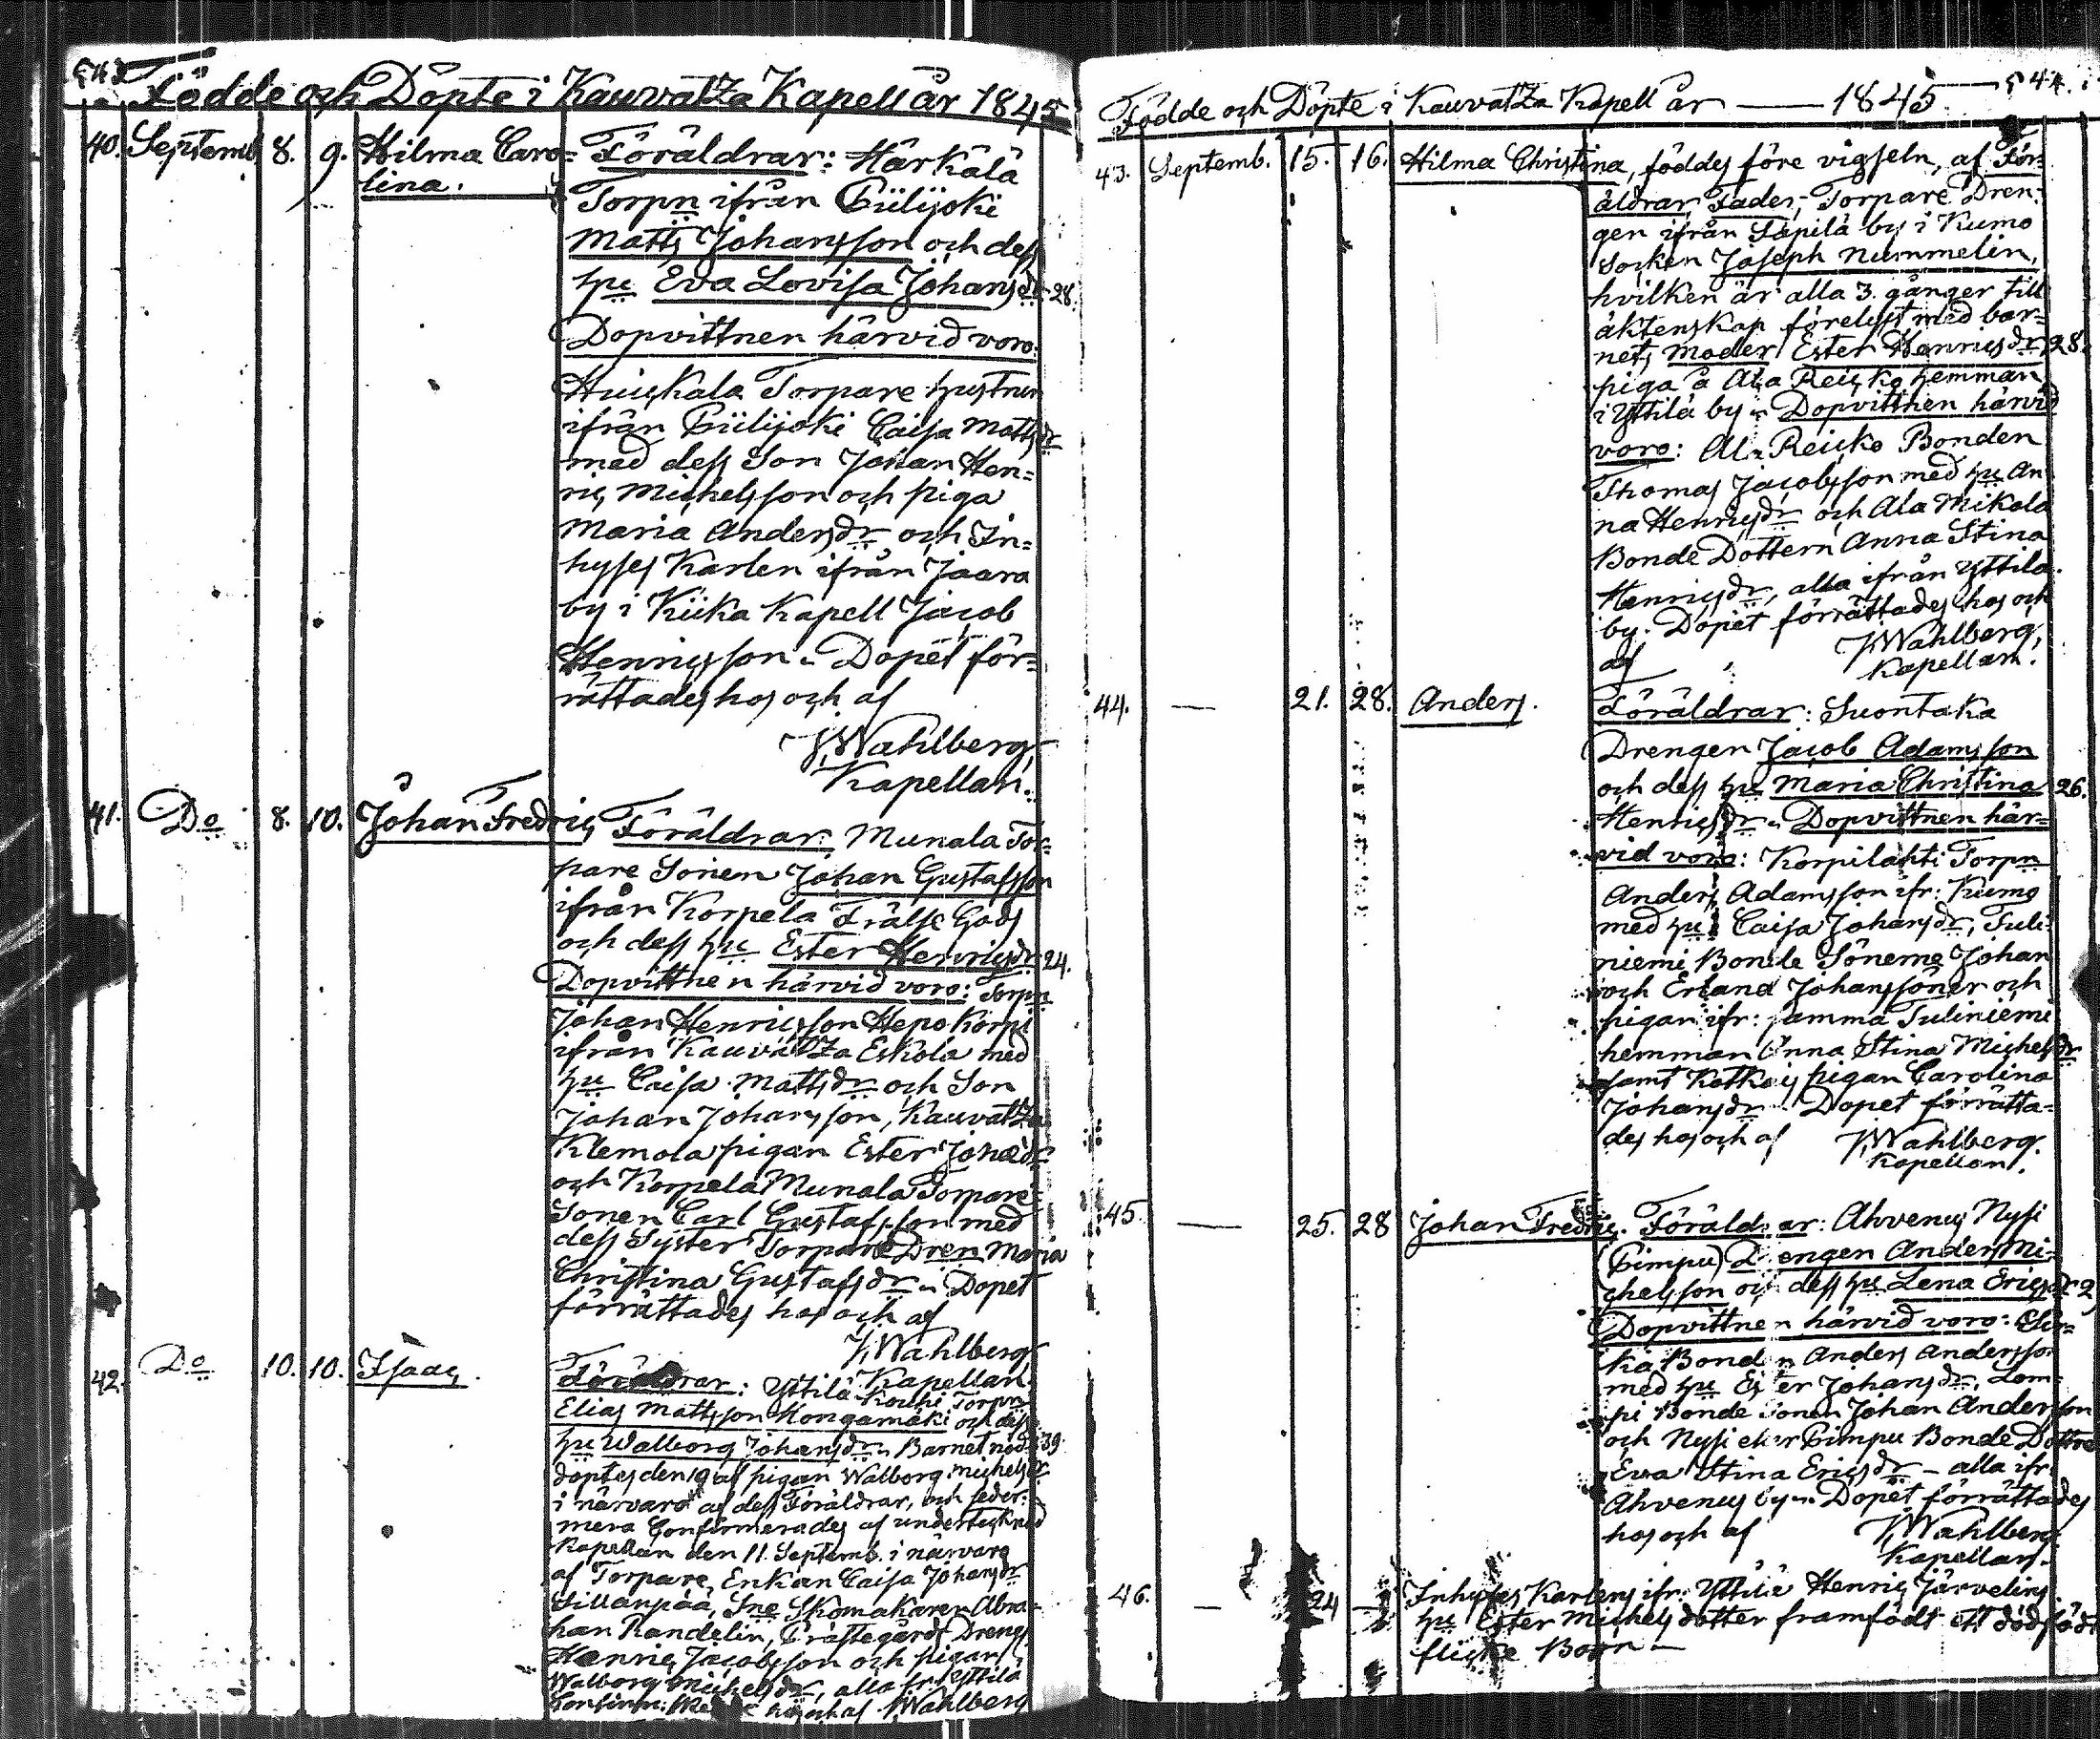 Födde och Döpte i Kauvatza Kapell år 1845
40. Septemb. 8. 9. Hilma Caro= Föräldrar: Härkälä
lina. Torpn ifrån Piilijoki
Matts Johansson och dess
hu Eva Lovisa Johansdr 28.
Dopvittnen härvid voro:
Huickala Torpare hustrun
ifrån Piilijoki Caisa Mattsdr
med dess Son Johan Hen=
ric Michelsson och piga
Maria Andersdr och In=
hyses Karlen ifrån Jaara
by i Kiika Kapell Jacob
Henricsson „ Dopet för=
rättades hos och af
J. Wahlberg
Kapellan.
41. Do 8. 10. Johan Fredric Föräldrar: Munala Tor=
pare Sonen Johan Gustafsson
ifrån Korpela Frälse Gods
och dess hu Ester Henricsdr 24.
Dopvittnen härvid voro: Torpn
Johan Henricsson Hepokorpi
ifrån Kauvatza Eskola med
hu Caisa Mattsdr och Son
Johan Johansson, Kauvatza
Klemola pigan Ester Johansdr
och Korpela Munala Torpare
Sonen Carl Gustafsson med
dess Syster Torpare Dren Maria
Christina Gustafsdr „ Dopet
förrättades hos och af
J. Wahlberg
Kapellan.
42. Do 10. 10. Isaac. Föräldrar: Yttilä Kouhi Torpn
Elias Mattsson Hongamäki och dess
hu Walborg Johansdr „ Barnet nöd= 39.
döptes den 10 af pigan Walborg Michelsdr
i närvaro af dess Föräldrar, och seder=
mera Confirmerades af undertecknad
Kapellan den 11. Septemb. i närvaro
af Torpare Enkan Caisa Johansdr
Sillanpää, Sne Skomakaren Abra=
ham Randelin, Prästegårds Dreng
Henric Jacobsson och pigan
Walborg Michelsdr, alla fr. Yttilä
hos och af J. Wahlberg
Födde och Döpte i Kauvatza Kapell år — 1845 544.
43. Septemb. 15. 16. Hilma Christina, föddes före vigseln, af För=
äldrar, Fader, Torpare Dren=
gen ifrån Säpilä by i Kumo
Socken Joseph Nummelin,
hvilken är alla 3. gånger till
äktenskap förelyst med bar=
nets Moder Ester Henricsdr 28.
piga å Ala Reicko hemman
i Yttilä by „ Dopvittnen härvid
voro: Ala Reicko Bonden
Thomas Jacobsson med hu An
na Henricsdr och Ala Mikola
Bonde Dottern Anna Stina
Henricsdr, alla ifrån Yttilä
by. Dopet förrättades hos och
af J. Wahlberg,
Kapellan.
44. — 21. 28. Anders. Föräldrar: Suontaka
Drengen Jacob Adamsson
och dess hu Maria Christina 26.
Henricsdr „ Dopvittnen här=
vid voro: Korpilahti Torpn
Anders Adamsson ifr: Kumo
med hu Caisa Johansdr, Tuli=
niemi Bonde Sönerne Johan
och Erland Johanssöner och
pigan ifr: samma Tuliniemi
hemman Anna Stina Michelsdr
samt pigan Carolina
Johansdr „ Dopet förrätta=
des hos och af J. Wahlberg.
Kapellan.
45. — 25. 28 Johan Fredric. Föräldrar: Ahvenus Nysi
(Pimpu) Drengen Anders Mi=
chelsson och dess hu Lena Ericsdr 2
Dopvittnen härvid voro:
Bonden Anders Andersson
med hu Ester Johansdr, Lom=
pi Bonde Sonen Johan Andersson
och Nysi eller Pimpu Bonde Dottren
Eva Stina Ericsdr — alla ifr.
Ahvenus by „ Dopet förrättades
hos och af J. Wahlberg
Kapellan.
46. — 24 — Inhyses Karlens ifr. Yttilä Henric Järvelins
hu Ester Michels dotter framfödt ett dödfödt
flicke Barn —